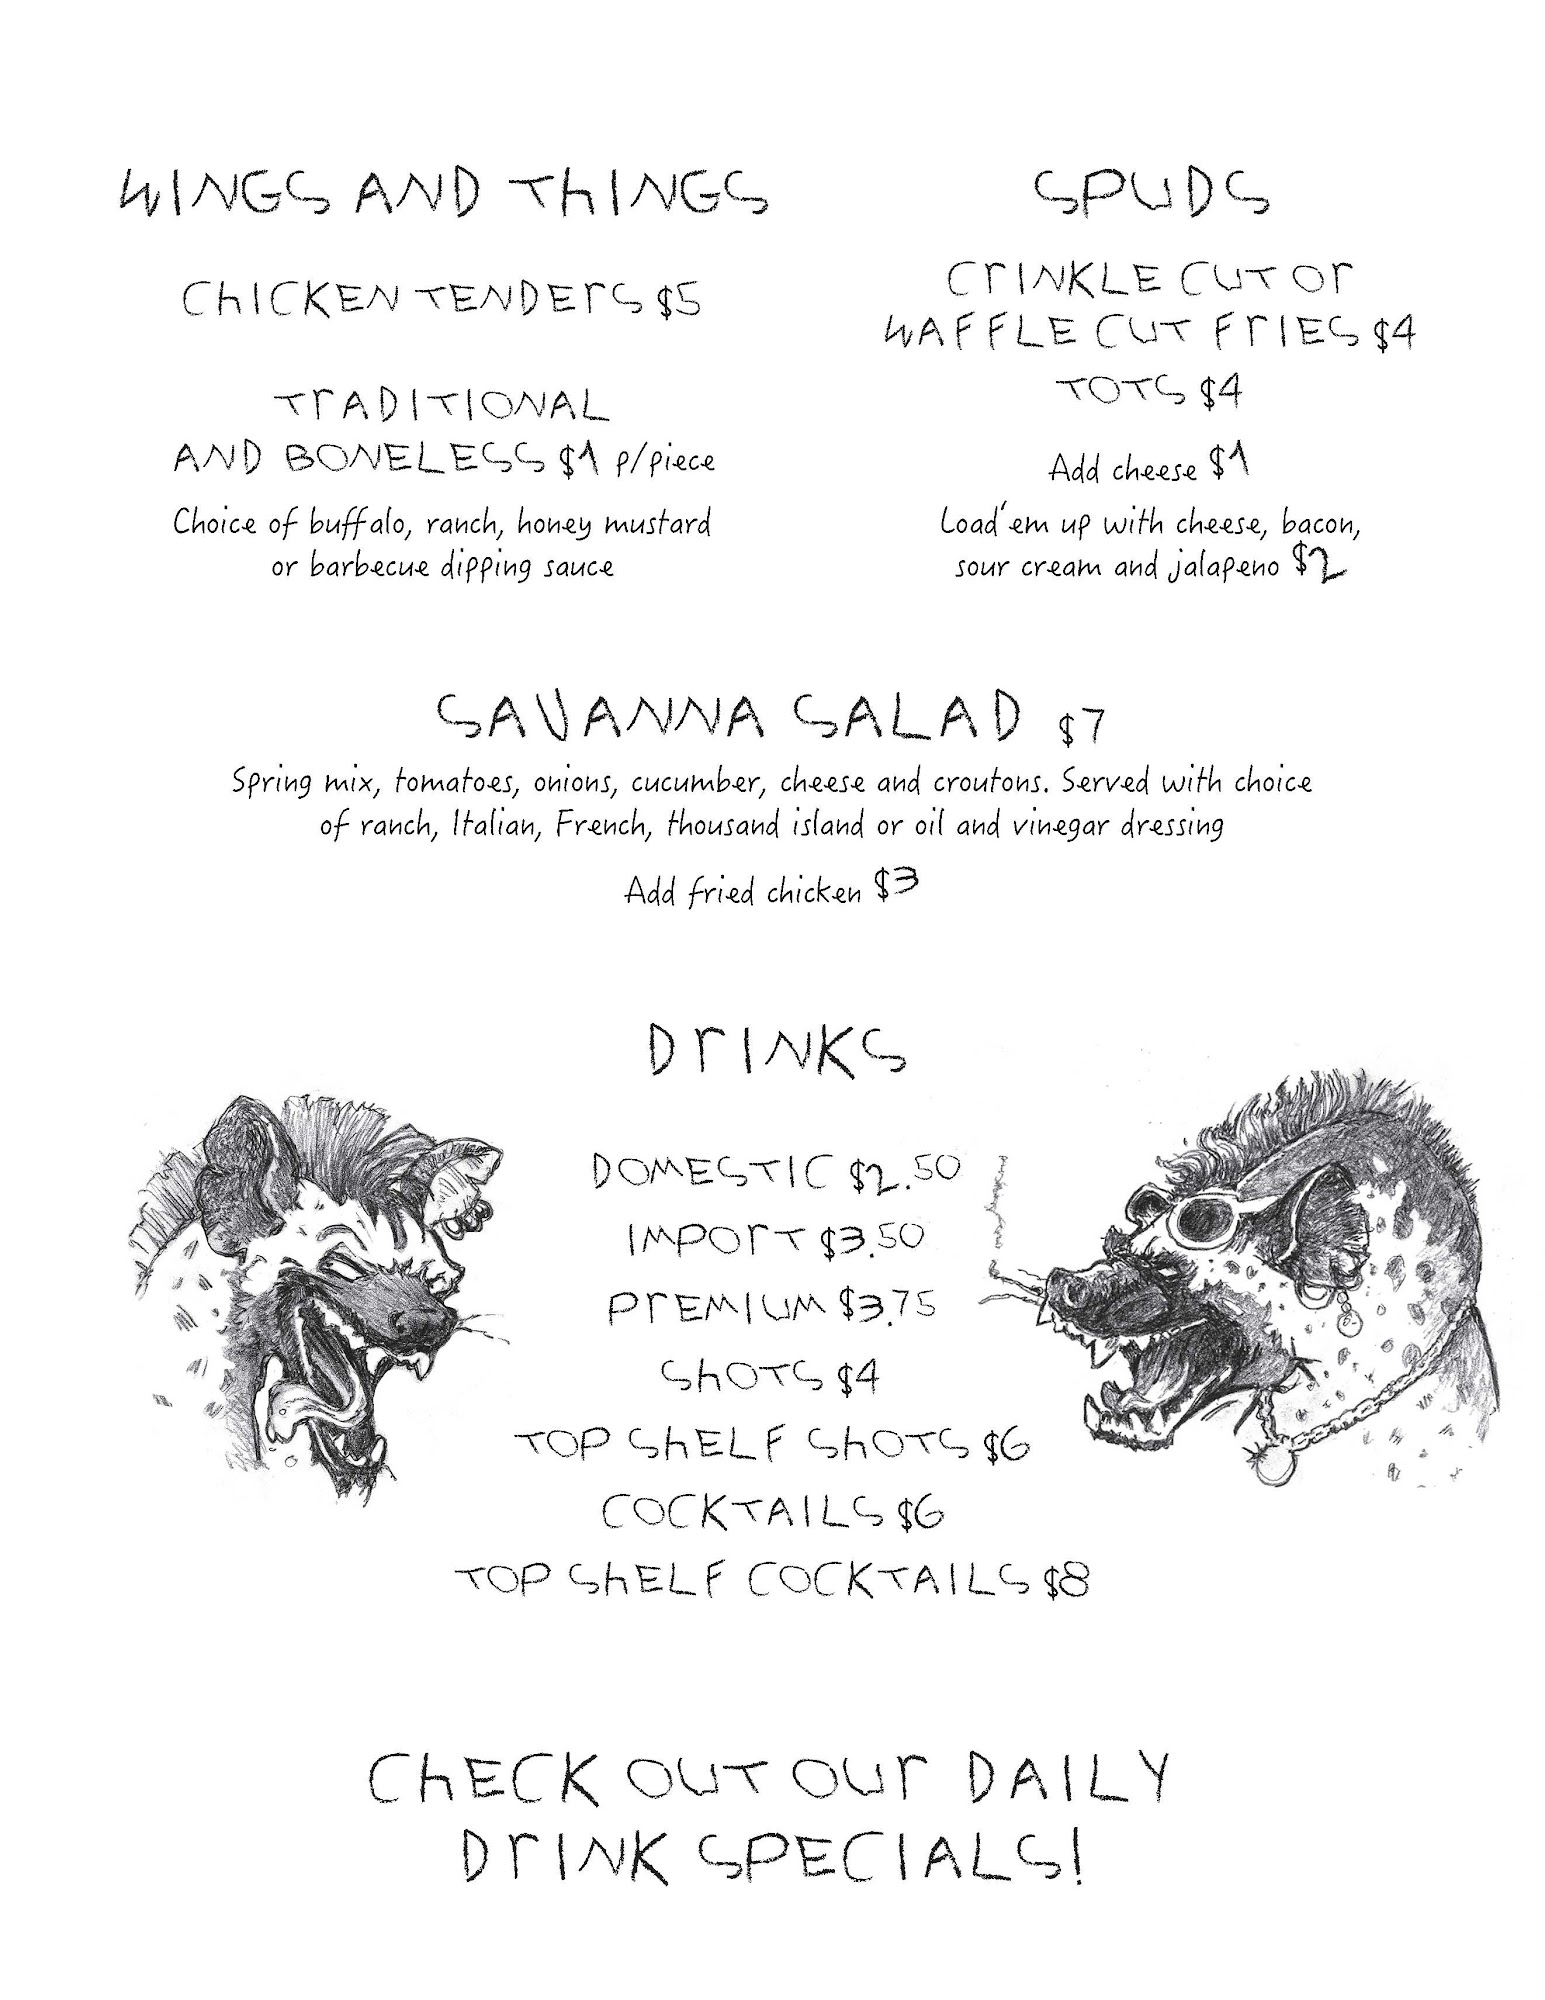 WINGS AND THINGS
CHICKEN TENDERS $5
TRADITIONAL
AND BONELESS $1 p/piece
Choice of buffalo, ranch, honey mustard
or barbecue dipping sauce
SPUDS
CRINKLE CUT OR
WAFFLE CUT FRIES $4
TOTS $4
Add cheese $1
Load'em up with cheese, bacon,
sour cream and jalapeno $2
SAVANNA SALAD $7
Spring mix, tomatoes, onions, cucumber, cheese and croutons. Served with choice
of ranch, Italian, French, thousand island or oil and vinegar dressing
Add fried chicken $3
DRINKS
DOMESTIC $2.50
IMPORT $3.50
PREMIUM $3.75
SHOTS $4
TOP SHELF SHOTS $6
COCKTAILS $6
TOP SHELF COCKTAILS $8
CHECK OUT OUR DAILY
DRINK SPECIALS!